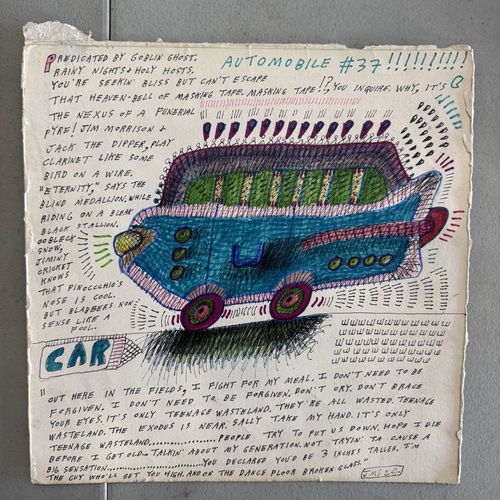 PREDICATED BY GOBLIN GHOST.
AUTOMOBILE #37!!!!!!!!!!
RAINY NIGHTS & HOLY HOSTS.
YOU'RE SEEKIN' BLISS BUT CAN'T ESCAPE
THAT HEAVEN-BELL OF MASKING TAPE MASKING TAPE!?, YOU INQUIRE. WHY, IT'S
THE NEXUS OF A FUNERIAL
PYRE! JIM MORRISON &
JACK THE DIPPER, PLAY
CLARINET LIKE SOME
BIRD ON A WIRE.
"ETERNITY," SAYS THE
BLIND MEDALLION. WHILE
RIDING ON A BLEAK
BLACK STALLION.
OOBLECK
SNOW,
JIMINY
CRICKET
KNOWS
THAT PINOCCHIO'S
NOSE IS COOL.
BUT BLABBERS NON
SENSE LIKE A
FOOL.
CAR
"OUT HERE IN THE FIELDS, I FIGHT FOR MY MEAL. I DON'T NEED TO BE
FORGIVEN. I DON'T NEED TO BE FORGIVEN. DON'T CRY. DON'T BRACE
YOUR EYES, IT'S ONLY TEENAGE WASTELAND. THEY'RE ALL WASTED. TEENAGE
WASTELAND. THE EXODUS IS NEAR. SALLY TAKE MY HAND. IT'S ONLY
TEENAGE WASTELAND...............PEOPLE TRY TO PUT US DOWN. HOPE I DIE
BEFORE I GET OLD... TALKIN' ABOUT MY GENERATION. NOT TRYIN' TA CAUSE A
BIG SENSATION....................YOU DECLARED YOU'D BE 3 INCHES TALLER. I'M
THE GUY WHO'LL GET YOU HIGH. AND ON THE DANCE FLOOR BROKEN GLASS."